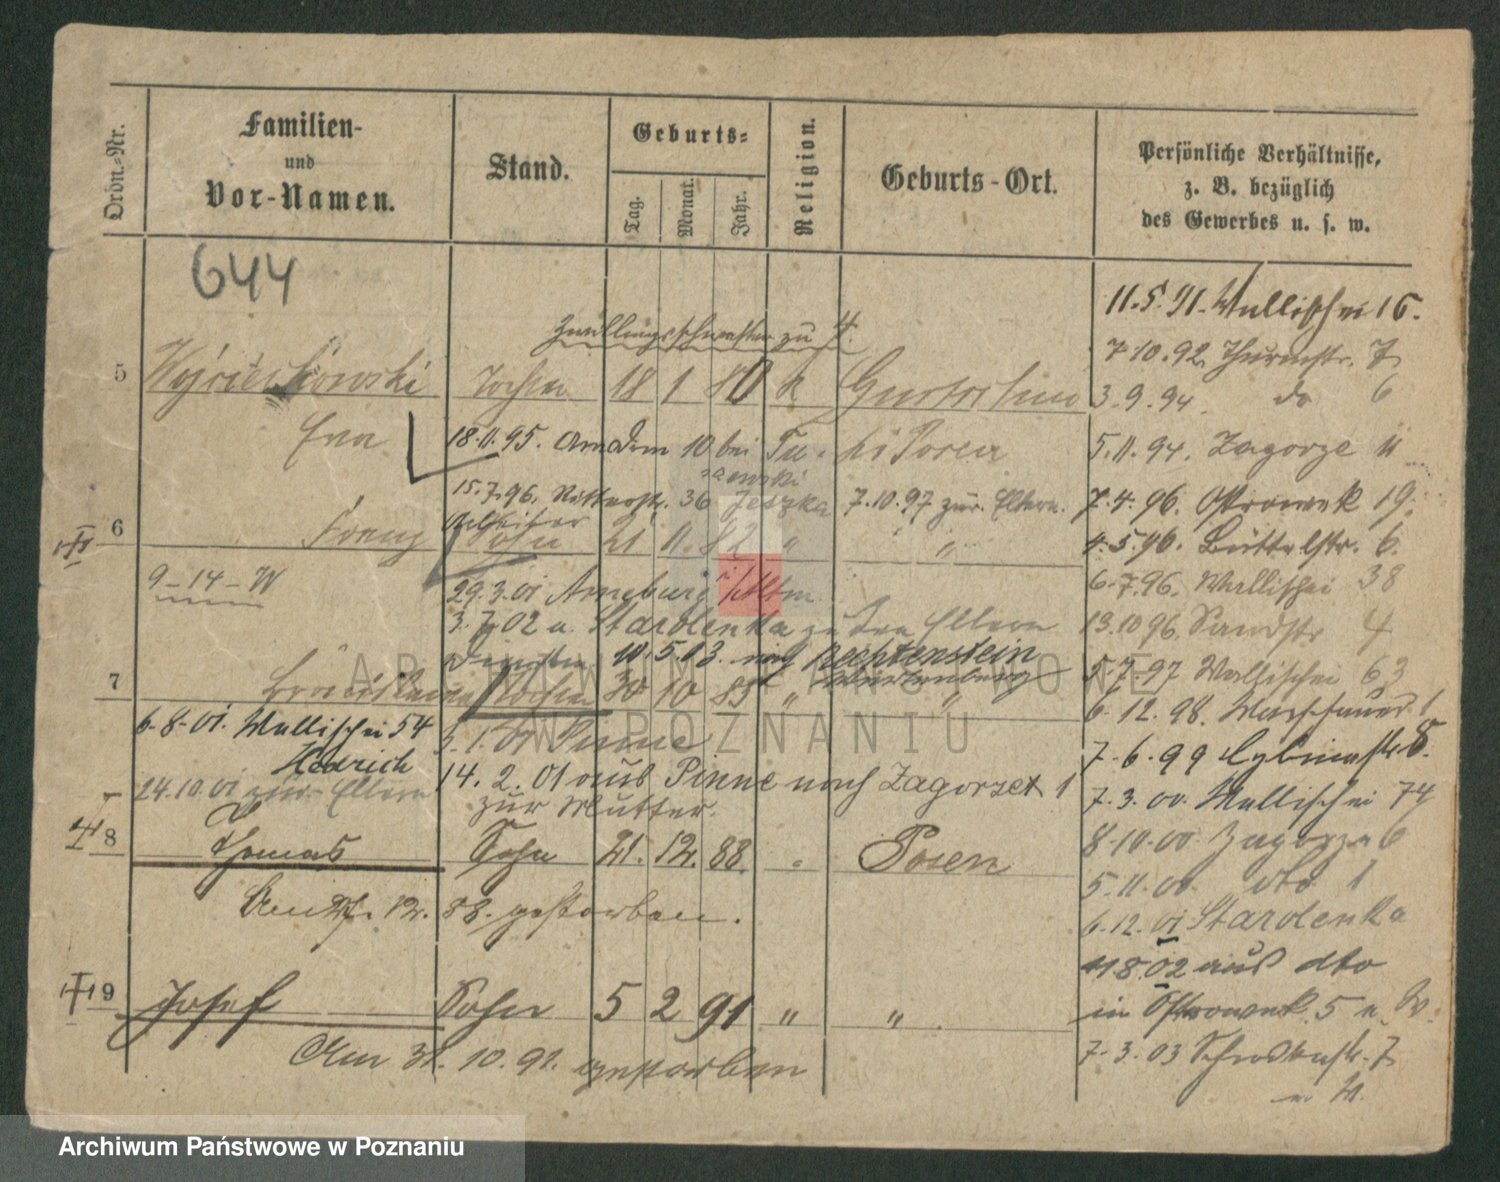 Ordn.-Nr.
Familien-
und
Vor-Namen.
Stand.
Geburts-
Tag.
Monat.
Jahr.
Religion.
Geburts-Ort.
Persönliche Verhältnisse,
z. B. bezüglich
des Gewerbes u. s. w.
644
11.5.91. Wallischei 16.
Zwillingsschwester zu 4.
7.10.92. Thurmstr. 7
5 Wojciechowski Tochter 18 1 80 k
3.9.94. do 6
Eva
18.11.95. Am Dom 10 bei
5.11.94. Zagorze 11
15.7.96. Ritterstr. 36 Jeszka 7.10.97 zur. Eltern.
7.4.96. Ostrowek 19.
Arbeiter
6 Franz Sohn 21 11. 82 " "
4.5.96. Büttelstr. 6.
9-14-W
29.3.01 Arneburg i/Altm.
6.7.96. Wallischei 38
3.7.02 a. Starolenka zu den Eltern
13.10.96. Sandstr 4
10.5.03. nach Rechtenstein
Württenberg
5.7.97 Wallischei 63
7 Tochter 30 10 85 " "
6.12.98. 1
6-8-01. Wallischei 54
Pinne
7.6.99 Cybinastr. 8.
Hedrich
14.2.01 aus Pinne nach Zagorze 1
24.10.01 zur. Eltern
zur Mutter.
7.3.00. Wallischei 74
8 Thomas Sohn 21. 12. 88. " Posen
8-10-00 Zagorze 6
5.11.00. dto 1
Am 27. 12. 88. gestorben.
6.12.01 Starolenka
8.02 aus dto
9 Josef Sohn 5 2 91 " "
in Ostrowek 5 n. W.
Am 31. 10. 91. gestorben
7.3.03 Schrodkastr. 7
ARCHIWUM PAŃSTWOWE
W POZNANIU
Archiwum Państwowe w Poznaniu